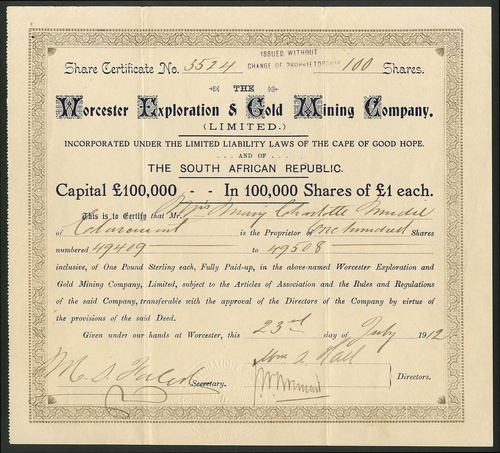 ISSUED WITHOUT
CHANGE OF PROPRIETORSHIP
Share Certificate No. 3524 100 Shares.
THE
Worcester Exploration & Gold Mining Company.
(LIMITED.)
INCORPORATED UNDER THE LIMITED LIABILITY LAWS OF THE CAPE OF GOOD HOPE.
... AND OF ...
THE SOUTH AFRICAN REPUBLIC.
Capital £100,000 - - In 100,000 Shares of £1 each.
This is to Certify that Mr. Mrs Mary Charlotte
of Claremont is the Proprietor of One hundred Shares
numbered 49409 to 49508
inclusive, of One Pound Sterling each, Fully Paid-up, in the above-named Worcester Exploration and
Gold Mining Company, Limited, subject to the Articles of Association and the Rules and Regulations
of the said Company, transferable with the approval of the Directors of the Company by virtue of
the provisions of the said Deed.
Given under our hands at Worcester, this 23rd day of July 1912
Secretary.
Directors.